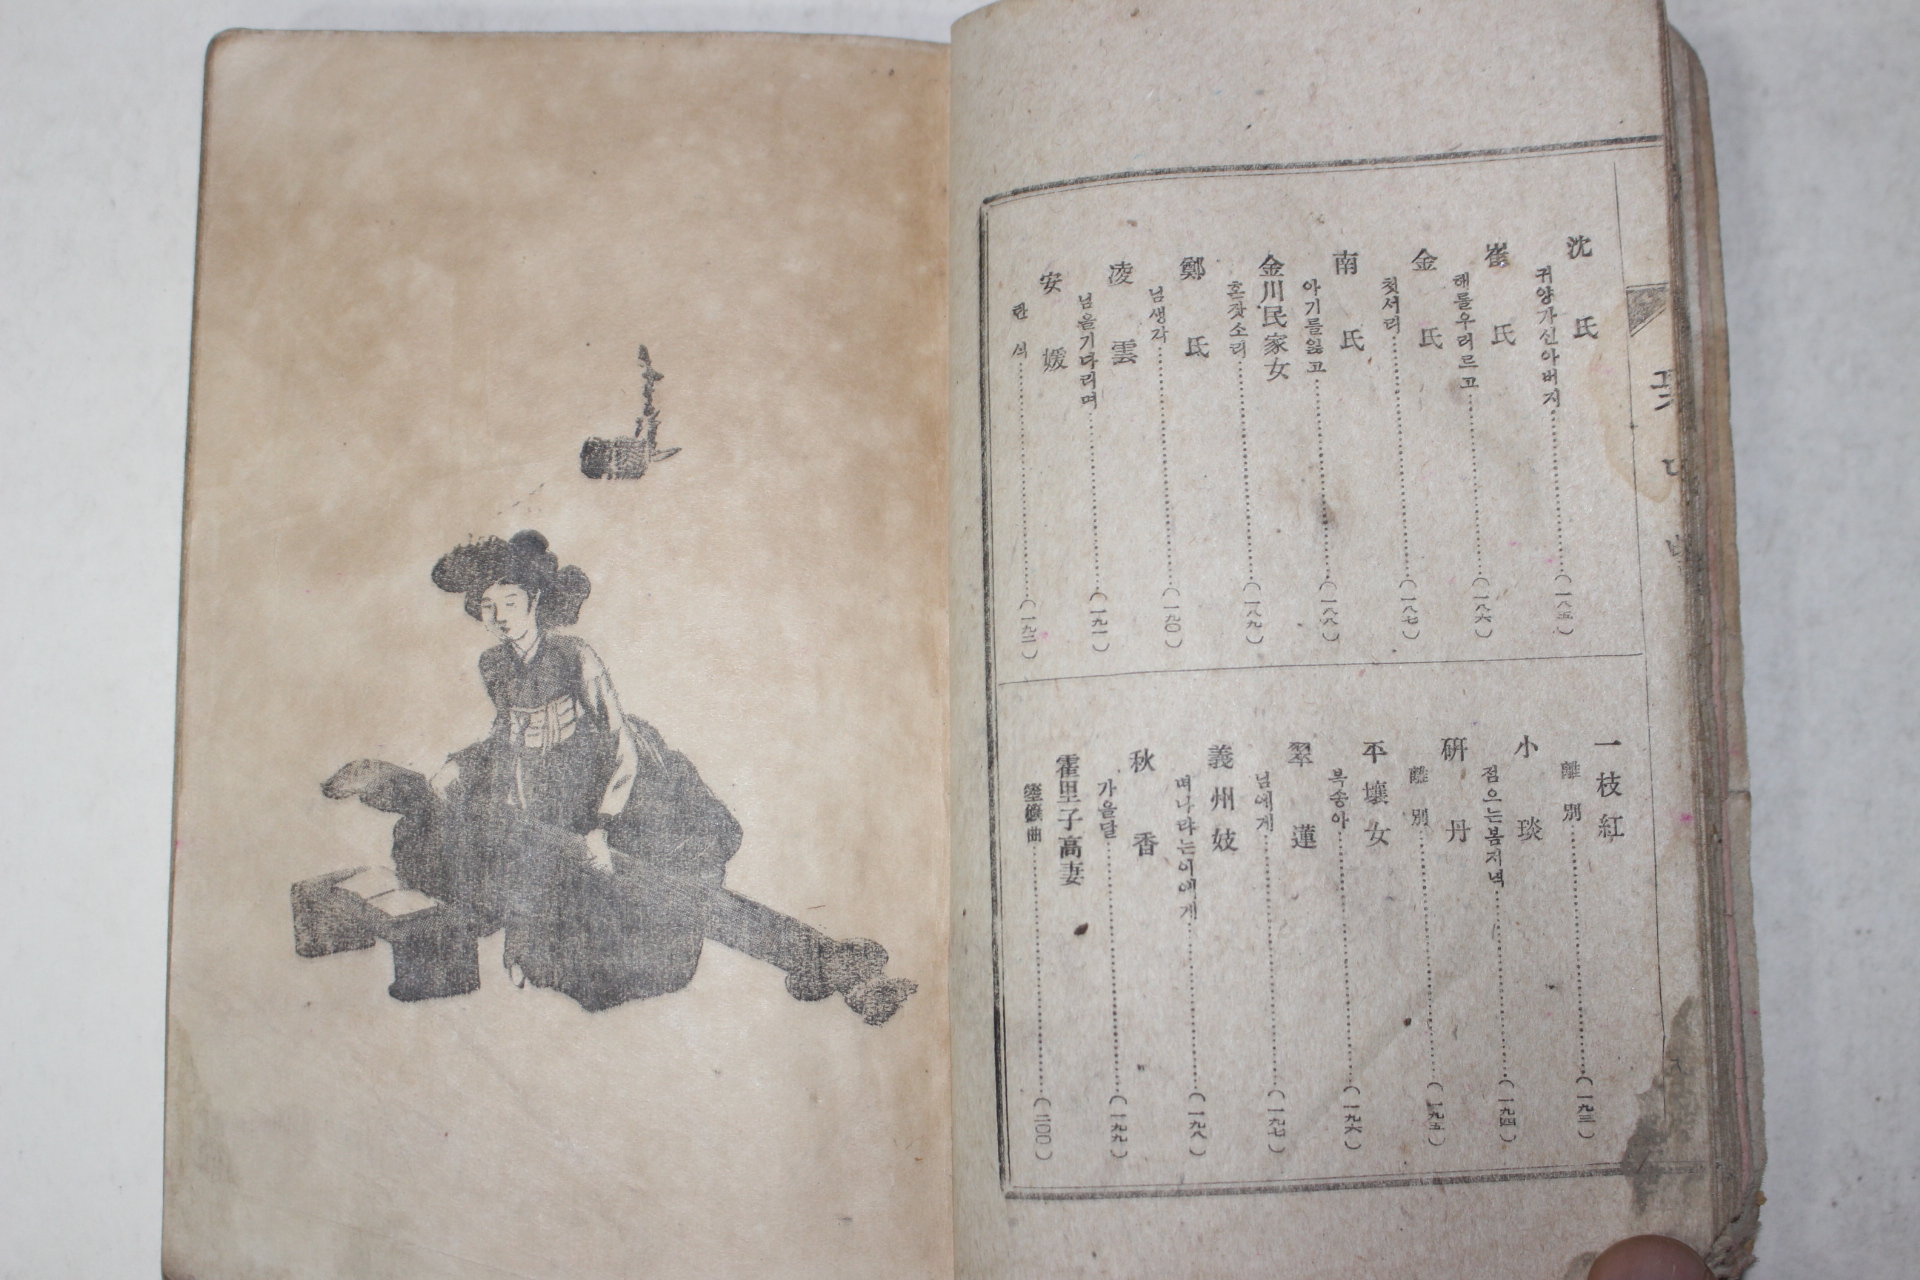 꽃다발
沈氏
귀양가신아버지……(一八五)
崔氏
해를우러르고……(一八六)
金氏
첫서리……(一八七)
南氏
아기를잃고……(一八八)
金川民家女
혼잣소리……(一八九)
鄭氏
님생각……(一九〇)
凌雲
님을기다리며……(一九一)
安媛
탄식……(一九二)
一枝紅
離別……(一九三)
小琰
점으는봄저녁……(一九四)
硏丹
離別……(一九五)
平壤女
복송아……(一九六)
翠蓮
님에게……(一九七)
義州妓
떠나랴는이에게……(一九八)
秋香
가을달……(一九九)
霍里子高妻
箜篌曲……(二〇〇)